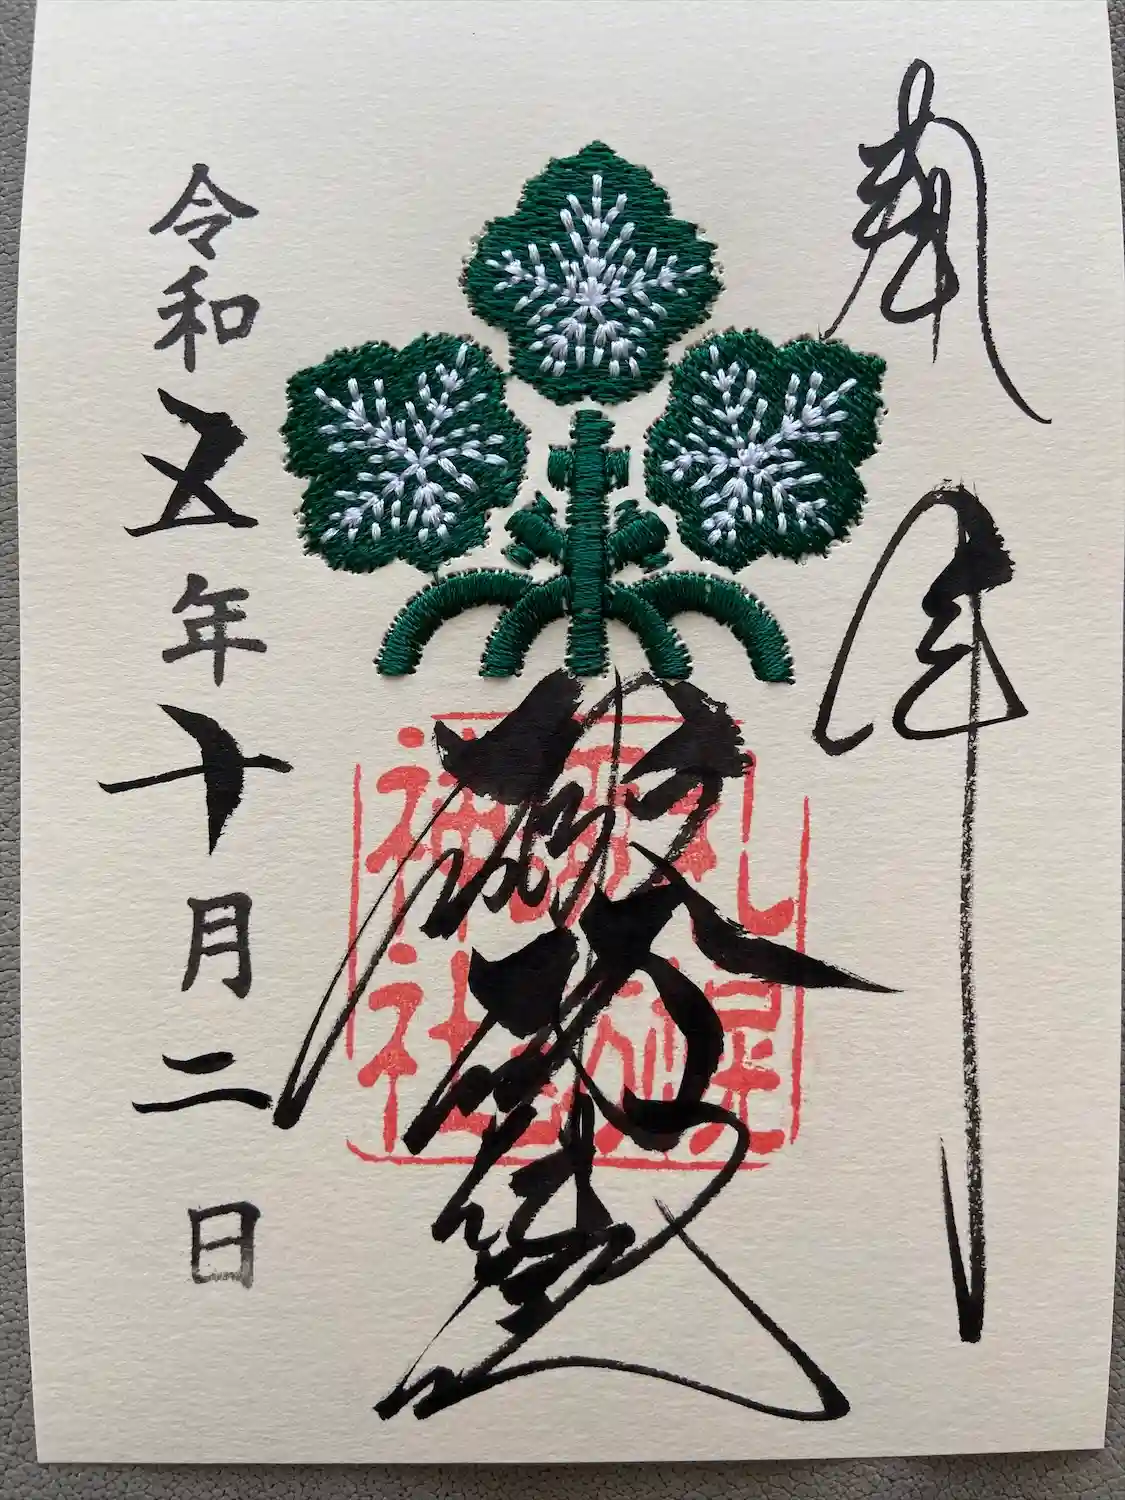 奉拝
札幌
諏訪
神社
令和五年十月二日